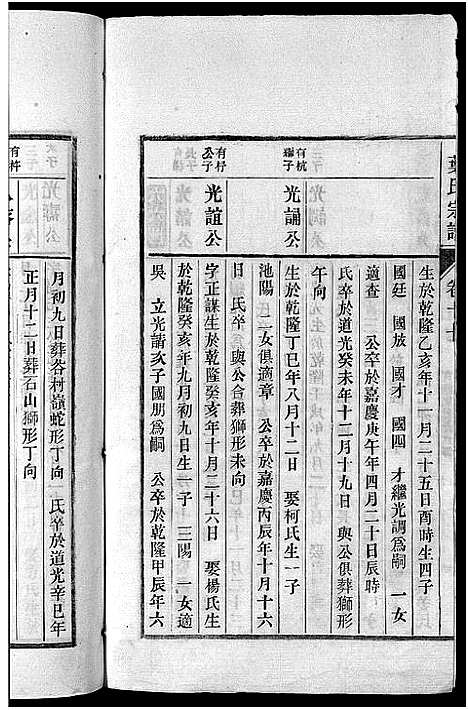 葉氏宗譜
生於乾隆乙亥年十一月二十五酉時生四子
國廷 國放 國才 國四 才繼光調爲嗣 一女
適查 公卒於嘉慶庚午年四月二十日辰時
氏卒於道光癸未年十二月十九日 與公俱葬獅形
午向
有杭繼子
光誦公
生於乾隆丁巳年八月十二日 娶柯氏生一子
池陽 二女俱適章 公卒於嘉慶丙辰年十月十六
日 氏卒 與公合葬獅形未向
有杍公子
光誼公
字正謀生於乾隆癸亥年十月三十六日 娶楊氏生
於乾隆癸亥年九月初九日生一子 三陽 一女適
吳 立光請次子國朋爲嗣 公卒於乾隆甲辰年六
月初九日葬谷村嶺蛇形丁向 氏卒於道光辛巳年
正月十二日葬石山獅形丁向
有杍